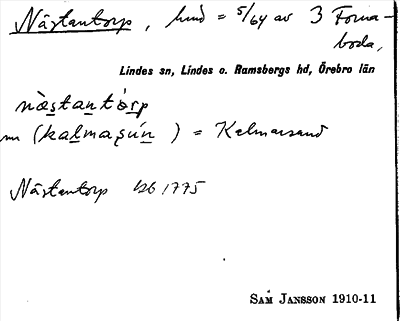 Nästantorp, hmd = 5/64 av 3 Forna-
boda,
Lindes sn, Lindes o. Ramsbergs hd, Örebro län
nàstantórp
(kalmasún) = Kalmarsund
Nästantorp 1775
SAM JANSSON 1910-11